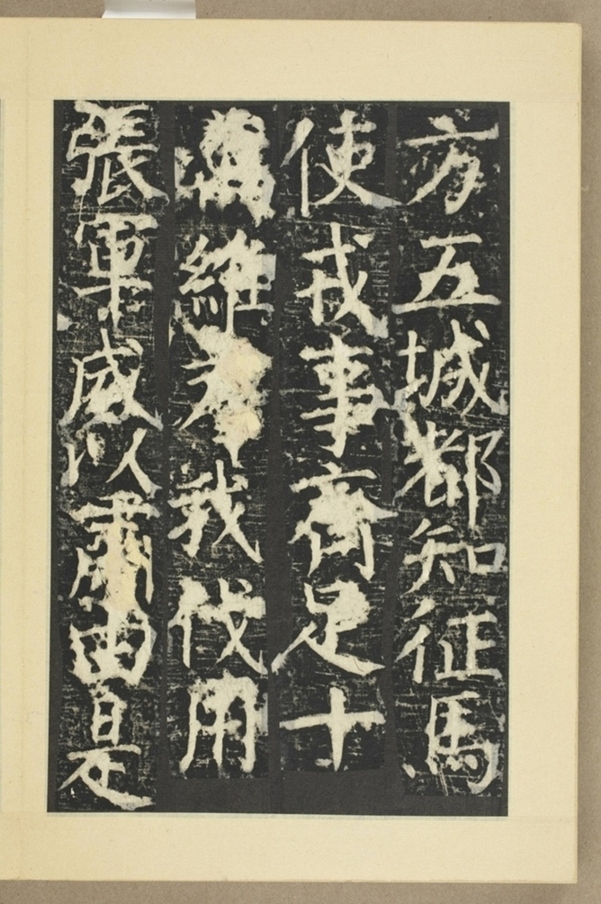 方五城都知征馬
使戎事齊足十
維我伐用
張軍威以肅由是